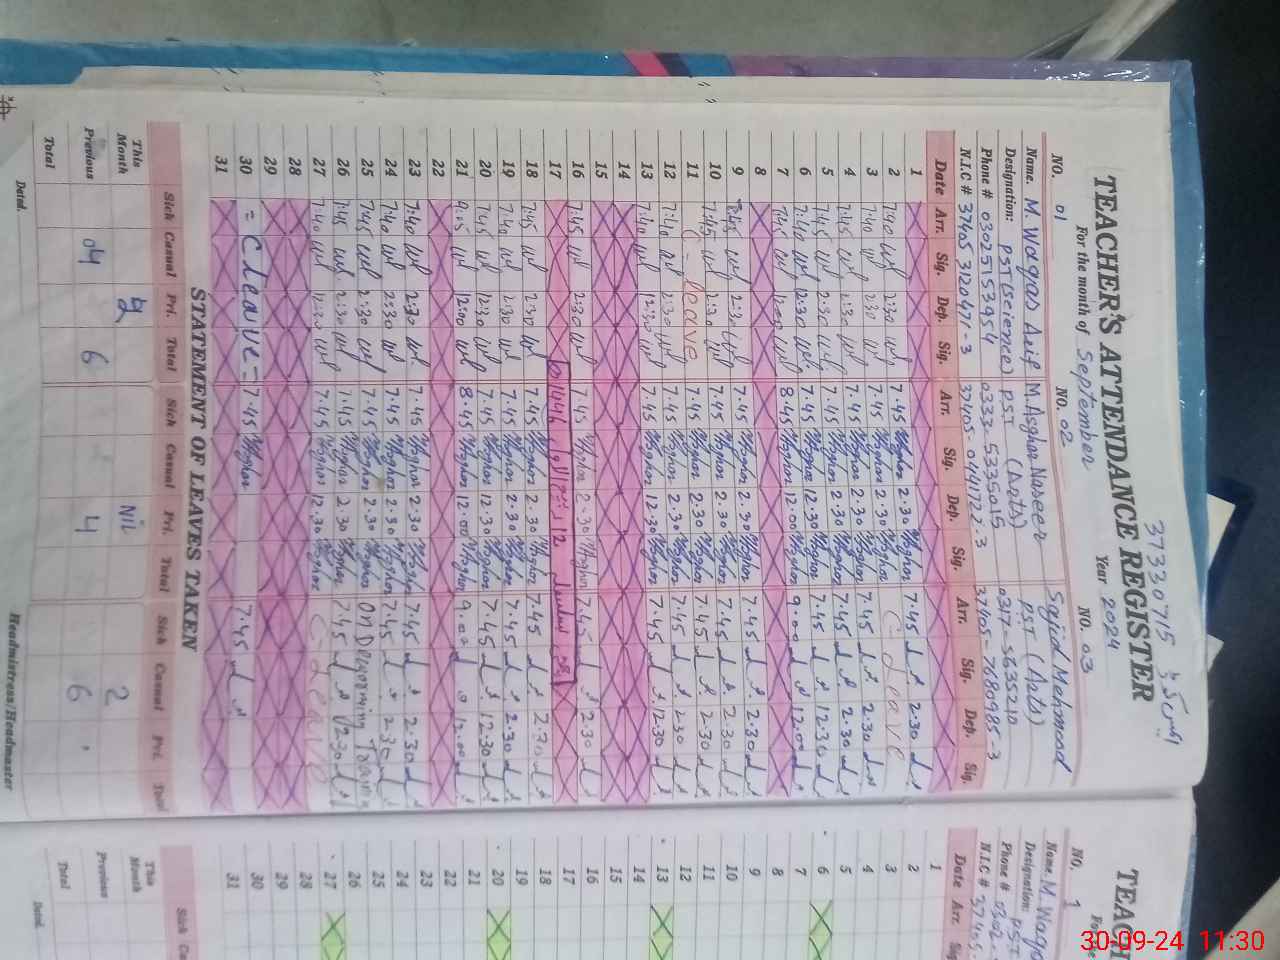 37330715
TEACHER'S ATTENDANCE REGISTER
For the month of September Year 2024
NO. 01 NO. 02 NO. 03
Name. M. Waqas Arif M Asghar Naseer Sajid Mehmood
Designation: PST (Science) PST (Arts) PST (Arts)
Phone # 03025153954 0333-5335015 0317-5635210
N.I.C # 37405 3120471-3 37405-0441722-3 37405-7680985-3
Date Arr. Sig. Dep. Sig. Arr. Sig. Dep. Sig. Arr. Sig. Dep. Sig.
1
2 7:40 2:30 7.45 2.30 7.45 2.30
3 7:40 2:30 7.45 2.30 C-Leave
4 7:45 2:30 7.45 2.30 7.45 2.30
5 7:45 2:30 7.45 2.30 7.45 2.30
6 7:40 12:30 7.45 12.30 7.45 12.30
7 7:45 12:00 8.45 12.00 9.00 12.00
8
9 7:45 2:30 7.45 2.30 7.45 2.30
10 7:45 2:30 7.45 2.30 7.45 2.30
11 C-leave 7.45 2.30 7.45 2.30
12 7:40 2:30 7.45 2.30 7.45 2.30
13 7:40 12:30 7.45 12.30 7.45 12.30
14
15
16 7:45 2:30 7.45 2.30 7.45 2.30
17 12
18 7:45 2:30 7.45 2.30 7.45 2.30
19 7:40 2:30 7.45 2.30 7.45 2.30
20 7:45 12:30 7.45 12.30 7.45 12.30
21 9:05 12:00 8.45 12.00 9.00 12.00
22
23 7:40 2:30 7.45 2.30 7.45 2.30
24 7:40 2:30 7.45 2.30 7.45 2.30
25 7:45 2:30 7.45 2.30 ON Deworming
26 7:45 2:30 7.45 2.30 7.45 12.30
27 7:40 12:30 7.45 12.30 C-Leave
28
29
30 = C leave = 7.45 7.45
31
STATEMENT OF LEAVES TAKEN
Sick Casual Pri. Total Sick Casual Pri. Total Sick Casual Pri. Total
This Month 2 Nil 2
Previous 04 6 4 6
Total
Dated. Headmistress/Headmaster
TEACH
NO. 1
Name. M. Waqa
Designation: PST
Phone # 0302-
N.I.C # 37405-
Date Arr.
1
2
3
4
5
6
7
8
9
10
11
12
13
14
15
16
17
18
19
20
21
22
23
24
25
26
27
28
29
30
31
Sick
This Month
Previous
Total
Dated.
30-09-24 11:30